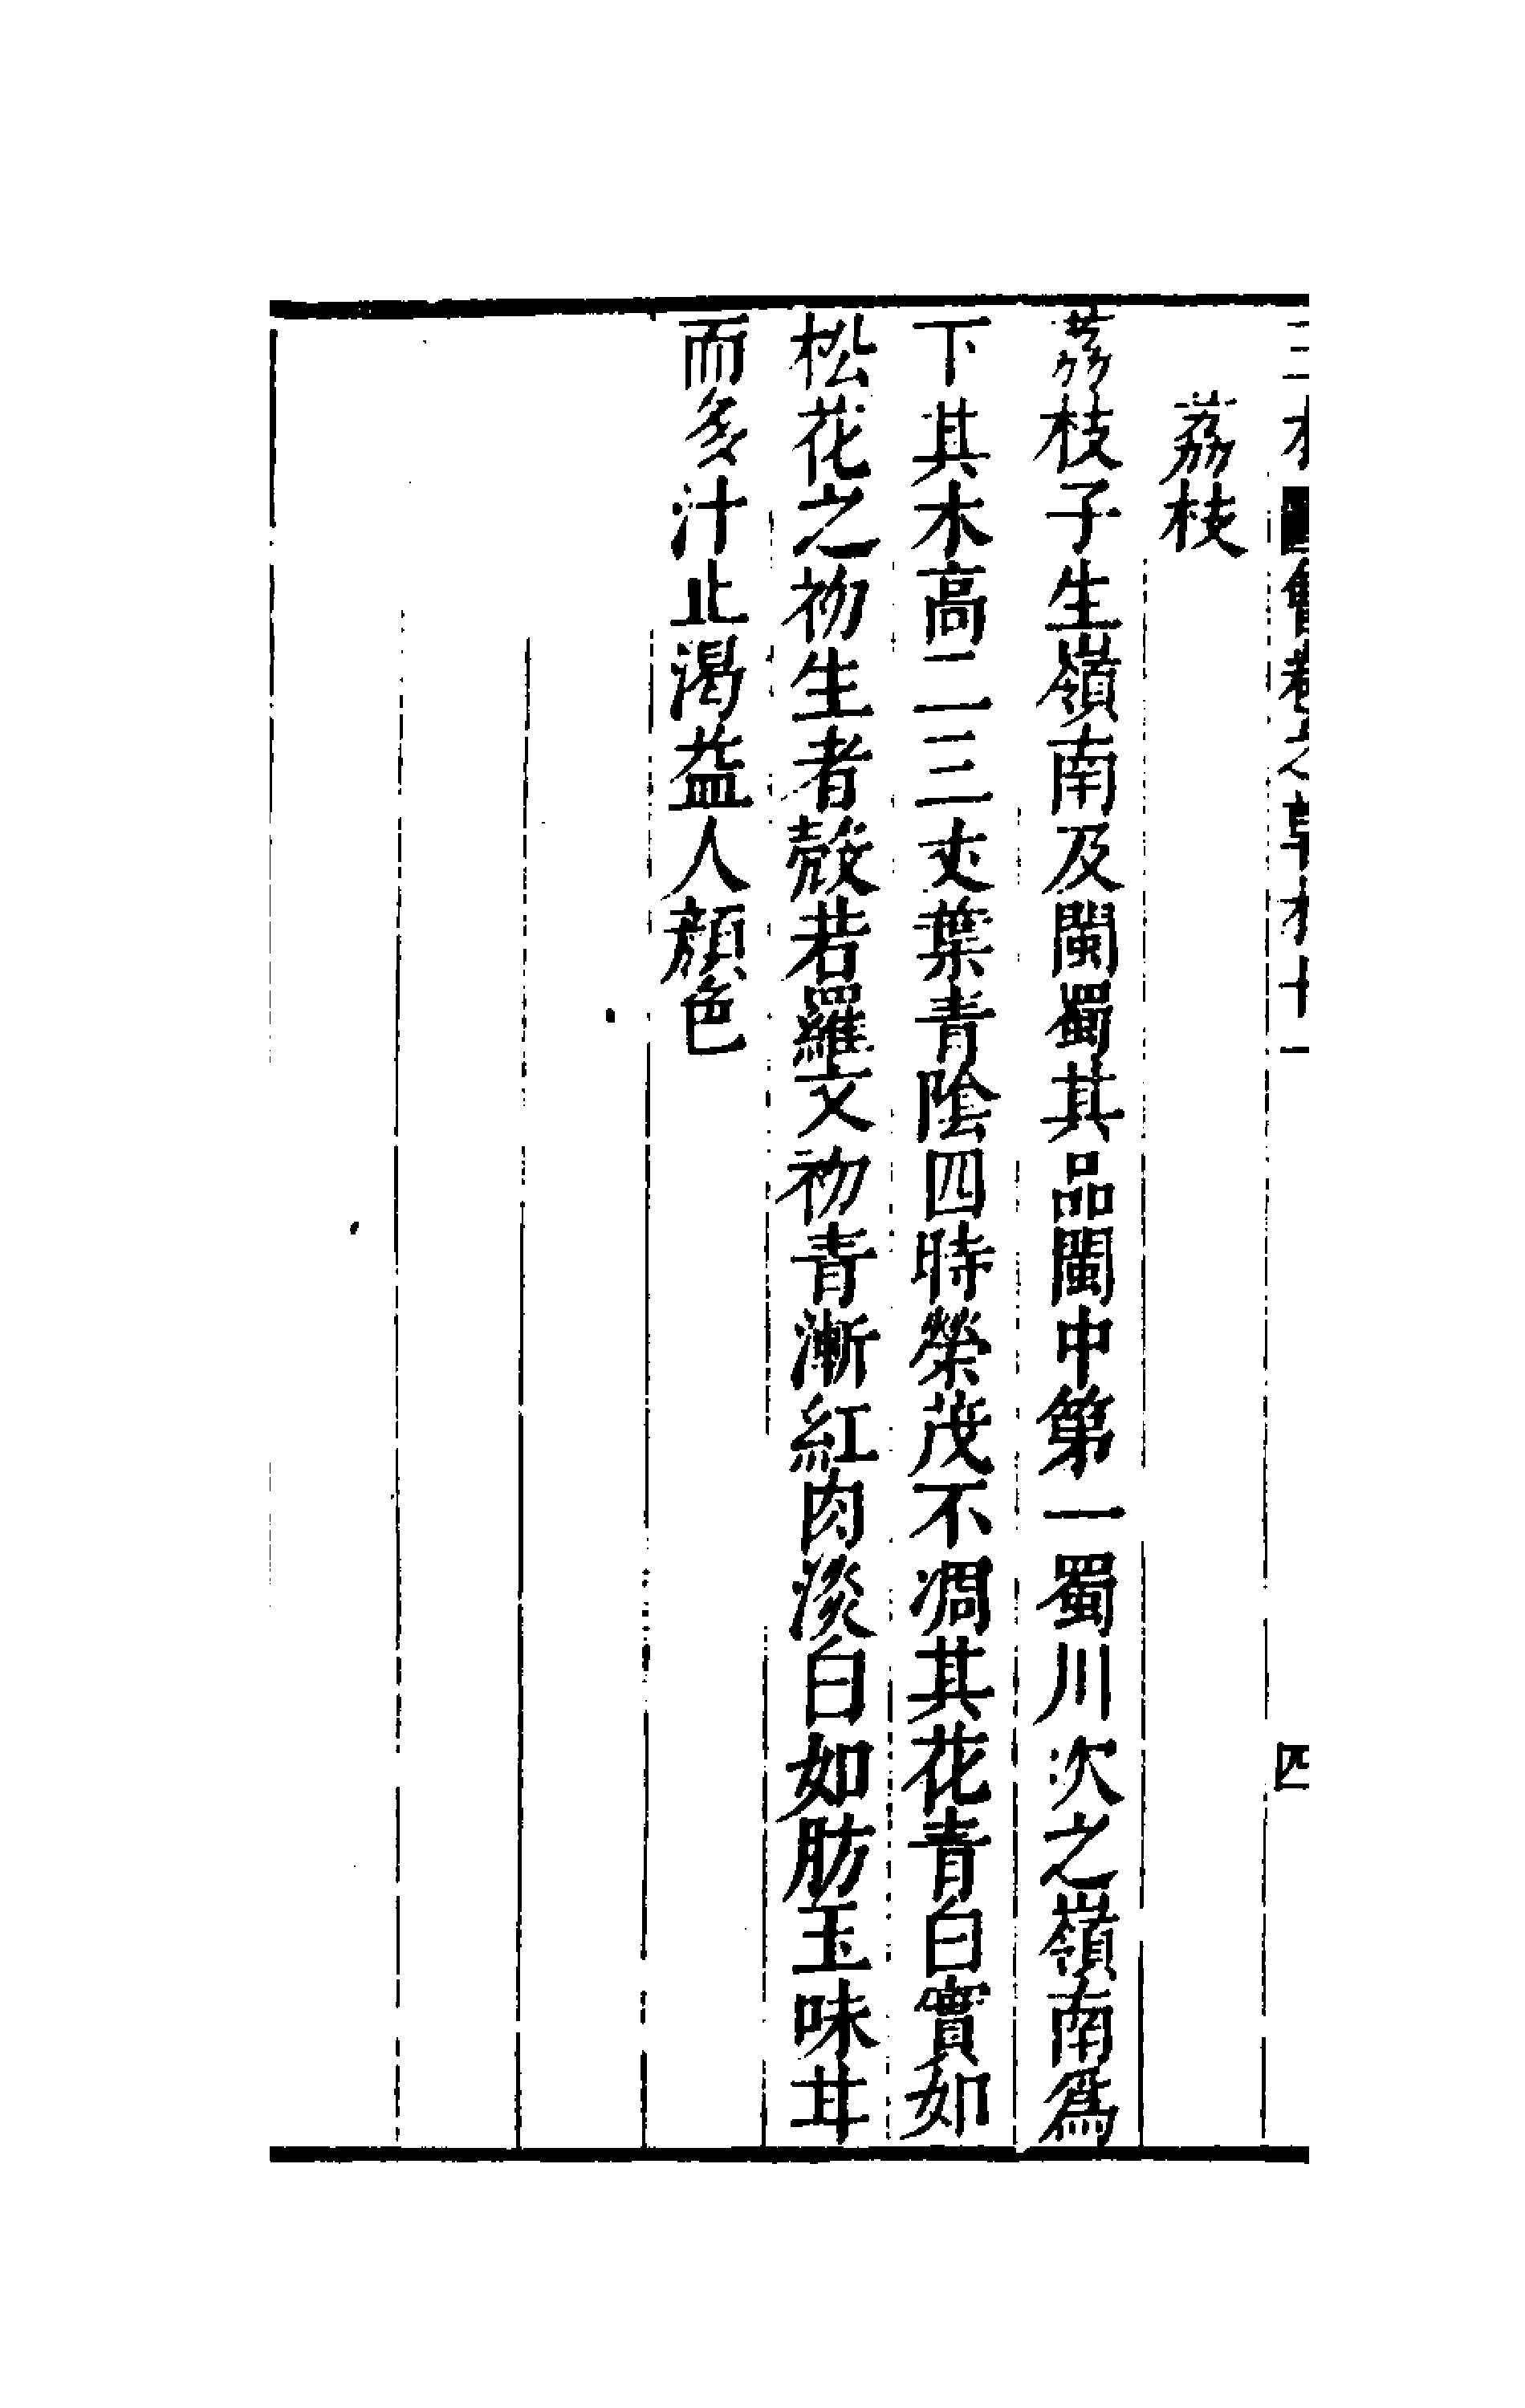 三才圖會卷之草木十一 四
荔枝
荔枝子生嶺南及閩蜀其品閩中第一蜀川次之嶺南爲
下其木高二三丈葉青陰四時榮茂不凋其花青白實如
松花之初生者殼若羅文初青漸紅肉淡白如肪玉味甘
而多汁止渴益人顔色